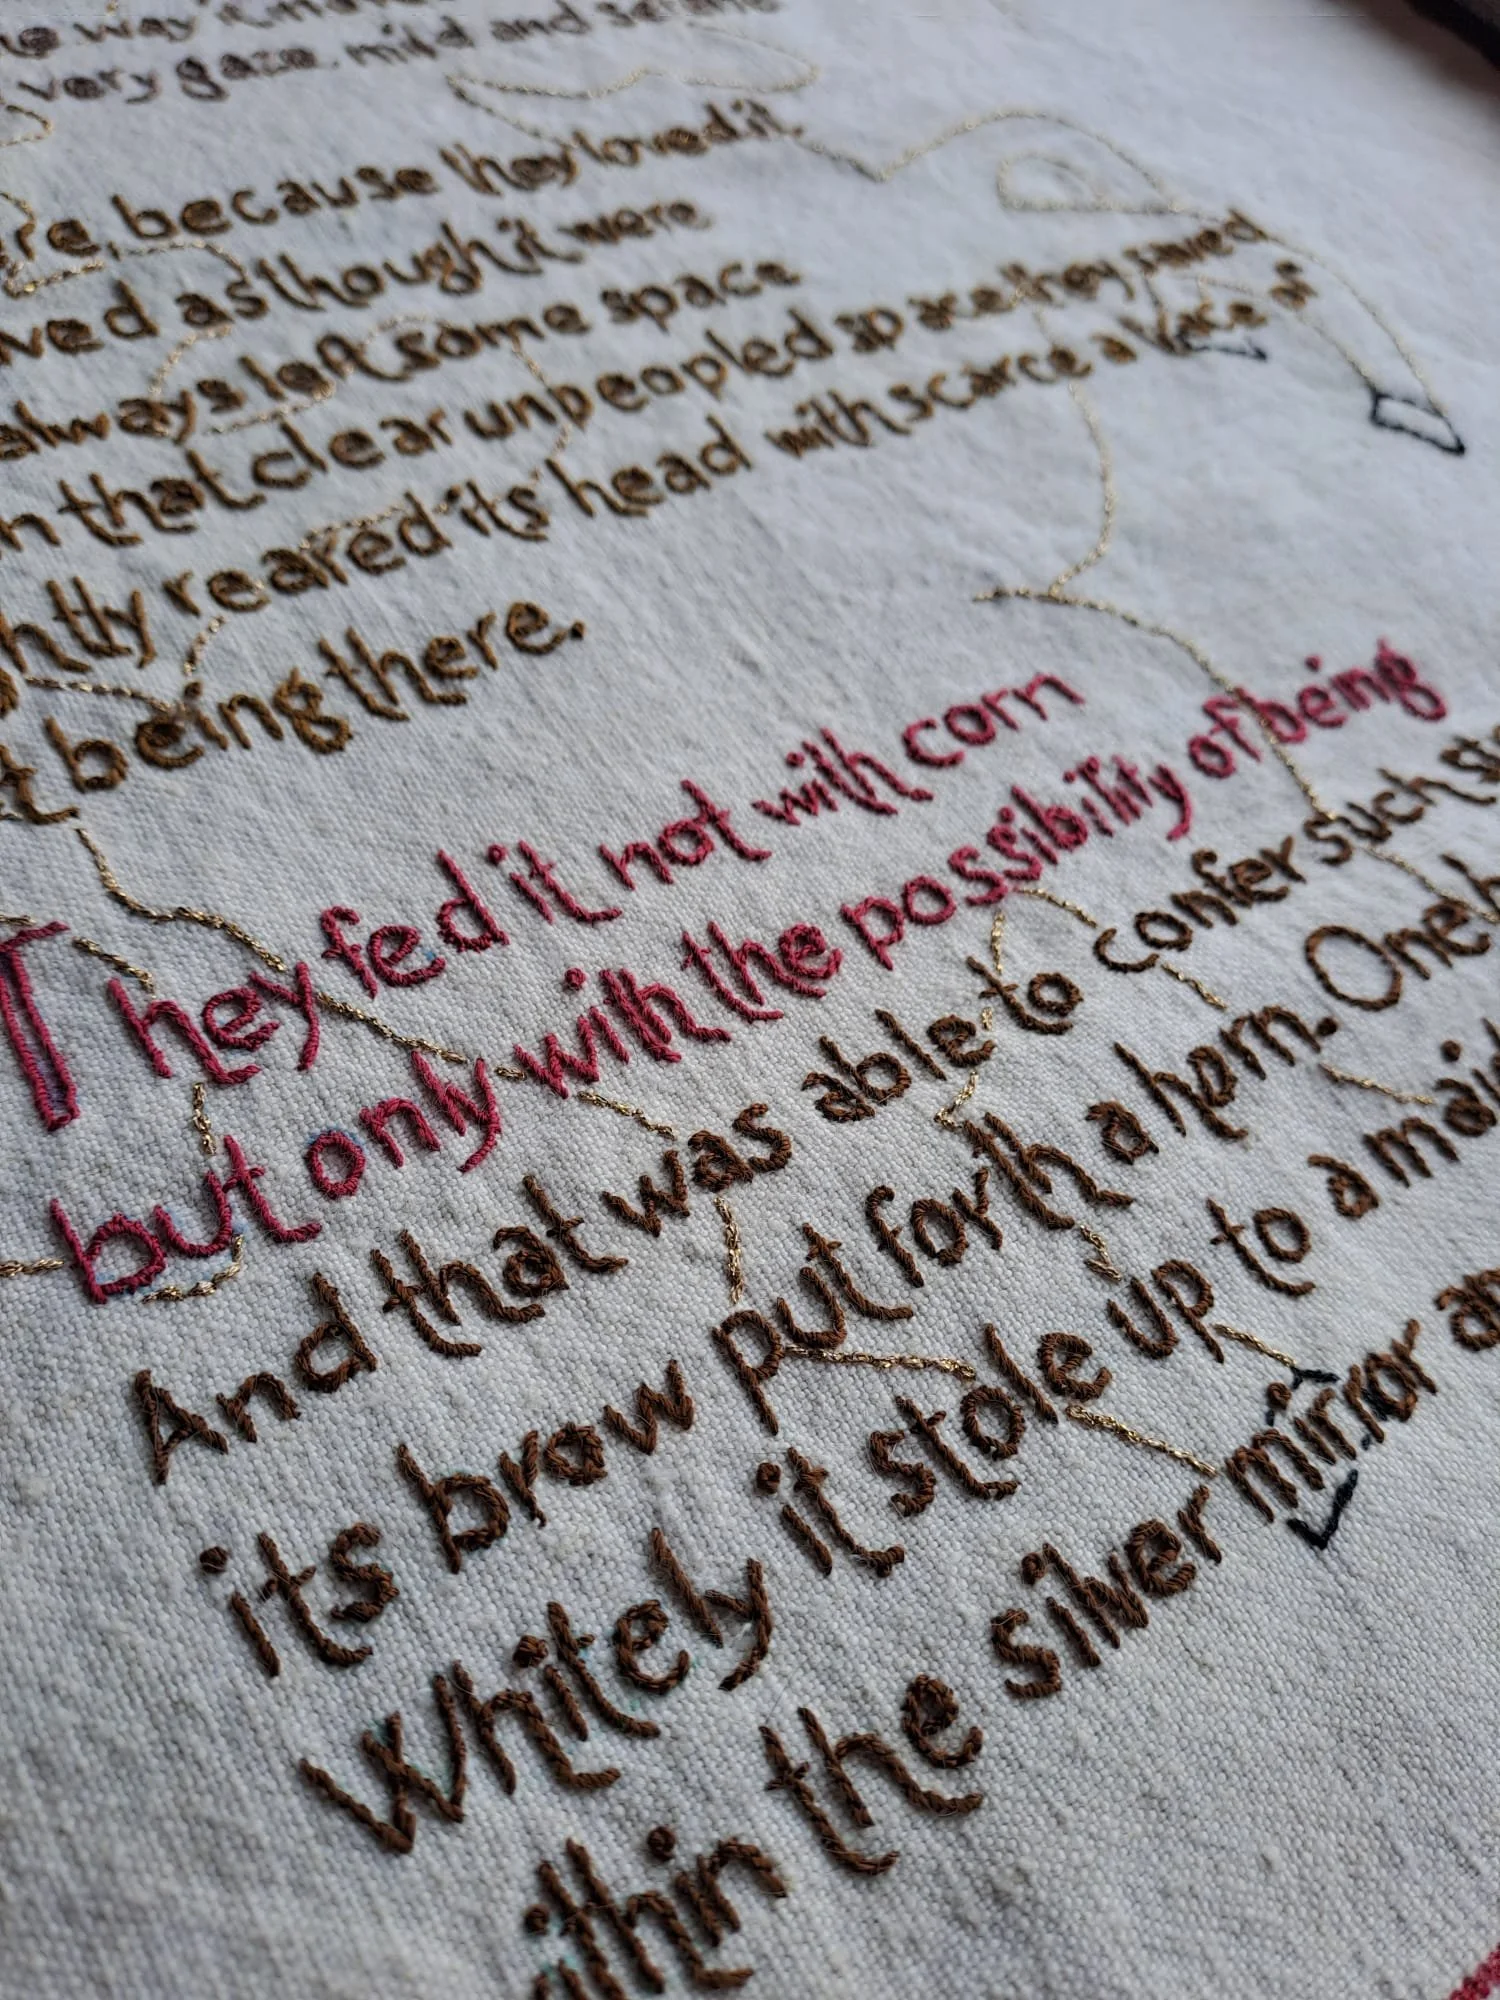 way
very gaze, mild and serene
re, because they loved it,
ved as though it were
always left some space
that clear unpeopled space they saved
htly reared its head with scarce a trace of
being there.
They fed it not with corn
but only with the possibility of being
And that was able to confer such st
its brow put forth a horn. One h
Whitely it stole up to a maid
ithin the silver mirror an